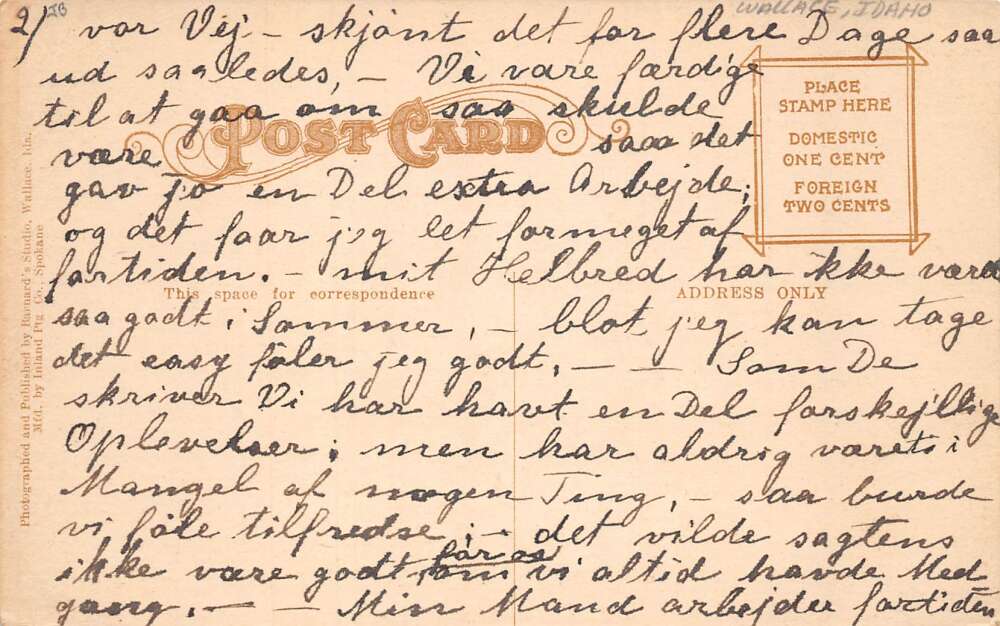 2/ JB
WALLACE, IDAHO
vor Vej – skjönt det for flere Dage saa
ud saaledes, – Vi vare færdige
til at gaa om saa skulde
være saaa det
gav jo en Del extra Arbejde;
og det faar jeg let formeget af
fortiden. – mit Helbred har ikke været
saa godt i Sommer, – blot jeg kan tage
det easy föler jeg godt, – – Som De
skriver Vi har havt en Del forskejllige
Oplevelser; men har aldrig været i
Mangel af nogen Ting, – saa burde
vi föle tilfredse; – det vilde sagtens
ikke være godt for os om vi altid havde Med
gang. – – Min Mand arbejder fortiden
POST CARD
PLACE
STAMP HERE
DOMESTIC
ONE CENT
FOREIGN
TWO CENTS
This space for correspondence
ADDRESS ONLY
Photographed and Published by Barnard's Studio, Wallace, Ida.
Mfd. by Inland Ptg. Co., Spokane